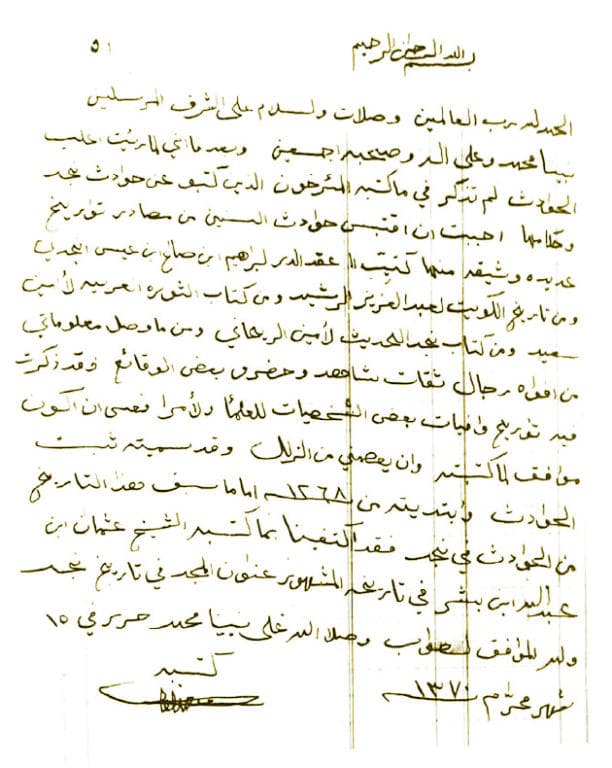 ٥١
بسم الله الرحمن الرحيم
الحمد لله رب العالمين وصلات ولسلام على اشرف المرسلين
نبينا محمد وعلى اله وصحبه اجمعين وبعد فانني لما رئيت اغلب
الحوادث لم تذكر في ما كتبه المئرخون الذين كتبو عن حوادث نجد
وحكامها احببت ان اقتبس حوادث السنين من مصادر تواريخ
عديده وثيقه منها كتيب عقد الدر لبراهيم ابن صالح ابن عيسى النجدي
ومن تاريخ الكويت لعبد العزيز الرشيد ومن كتاب الثوره العربيه لأمين
سعيد ومن كتاب نجد الحديث لأمين الريحاني ومن ما وصل معلوماتي
من افواه رجال ثقات شاهدو وحضرو بعض الوقائع وقد ذكرت
فيه تواريخ وافيات بعض الشخصيات للعلمأ ولأمرا فعسى ان اكون
موافق لما كتبته وان يعصمني من الزلل وقد سميته ثبت
الحوادث وأبتديته من ١٢٦٨ اما ما سبق هذا التاريخ
من الحوادث في نجد فقد اكتفينا بما كتبه الشيخ عثمان ابن
عبدالله ابن بشر في تاريخه المشهور عنوان المجد في تاريخ نجد
ولله الموافق لصواب وصلا الله على نبينا محمد حرير في ١٥
شهر محرم ١٣٧٠
كتبه